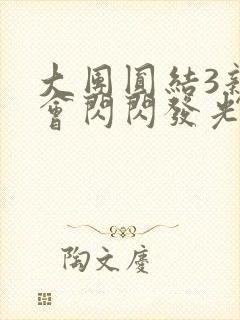 大團圓結3新
會閃閃發光
陶文慶